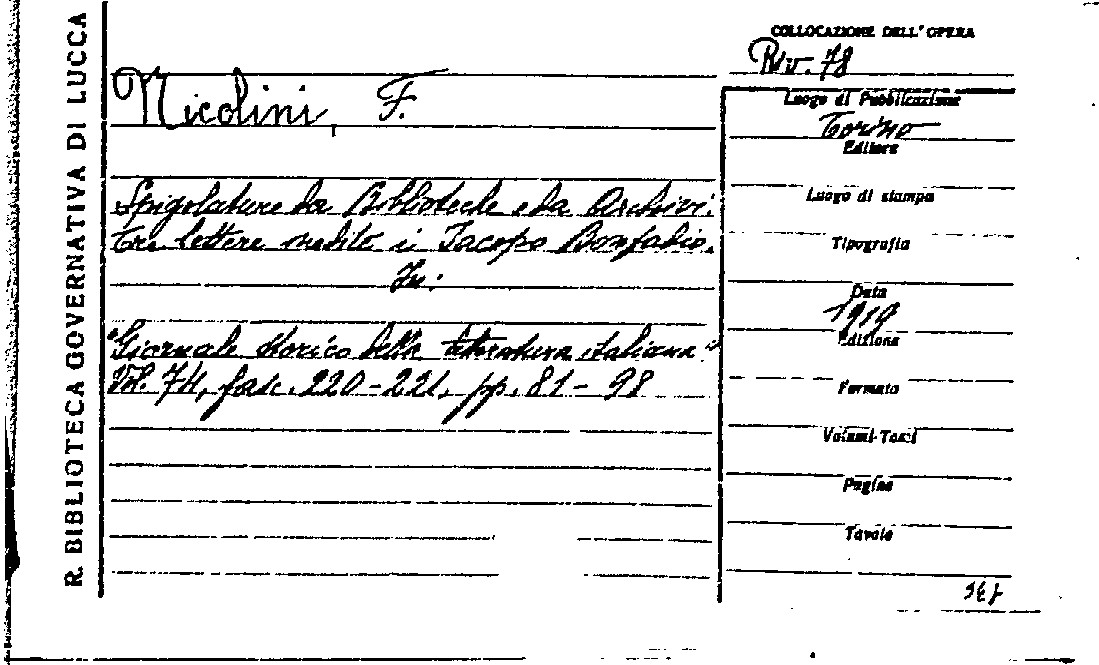 R. BIBLIOTECA GOVERNATIVA DI LUCCA
Nicolini, F.
Spigolature da Biblioteche e da Archivi:
tre lettere inedite di Jacopo Bonfadio.
In:
"Giornale storico della letteratura italiana"
Vol. 74, fasc. 220-221, pp. 81-98
COLLOCAZIONE DELL'OPERA
Riv. 78
Luogo di Pubblicazione
Torino
Editore
Luogo di stampa
Tipografia
Data
1919
Edizione
Formato
Volumi-Tomi
Pagine
Tavole